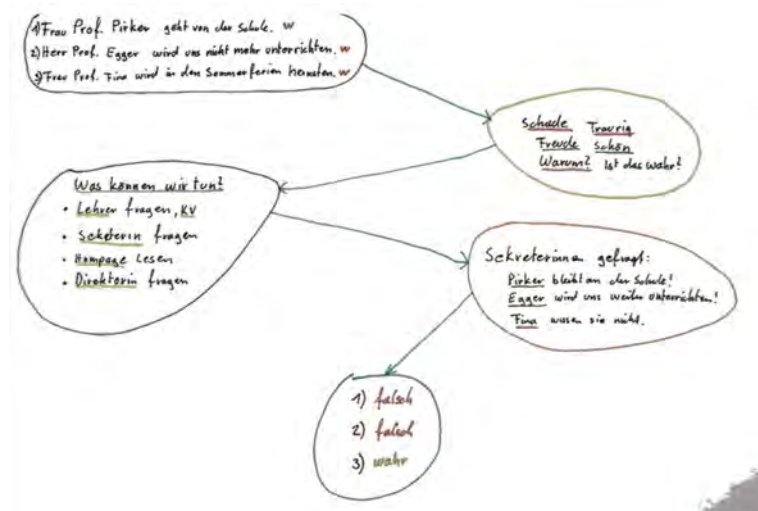 1) Frau Prof. Pirker geht von der Schule. w
2) Herr Prof. Egger wird uns nicht mehr unterrichten. w
3) Frau Prof. Fina wird in den Sommerferien heiraten. w
Schade Traurig
Freude Schön
Warum? Ist das wahr?
Was können wir tun?
• Lehrer fragen, KV
• Seketerin fragen
• Hompage Lesen
• Direktorin fragen
Sekreterinnen gefragt:
Pirker bleibt an der Schule!
Egger wird uns weiter unterrichten!
Fina wusen sie nicht.
1) falsch
2) falsch
3) wahr